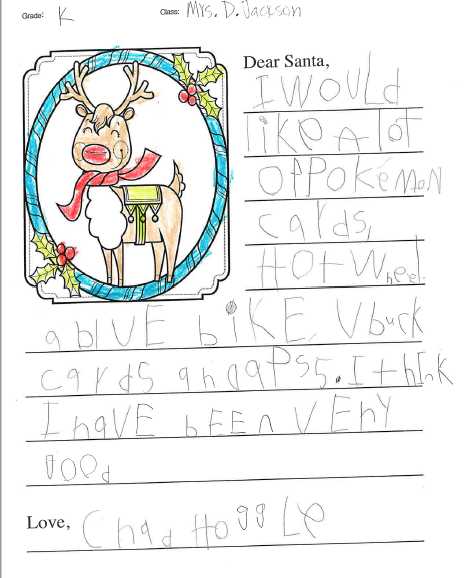 Grade: K Class: Mrs. D. Jackson
Dear Santa,
I WOULd
like A lot
OfPOKéMoN
cards,
HOt Wheel.
a blUE biKE, Vbuck
cards andaPS5. I thInK
I haVE bEEn VERY
good
Love, Chad HoggLe